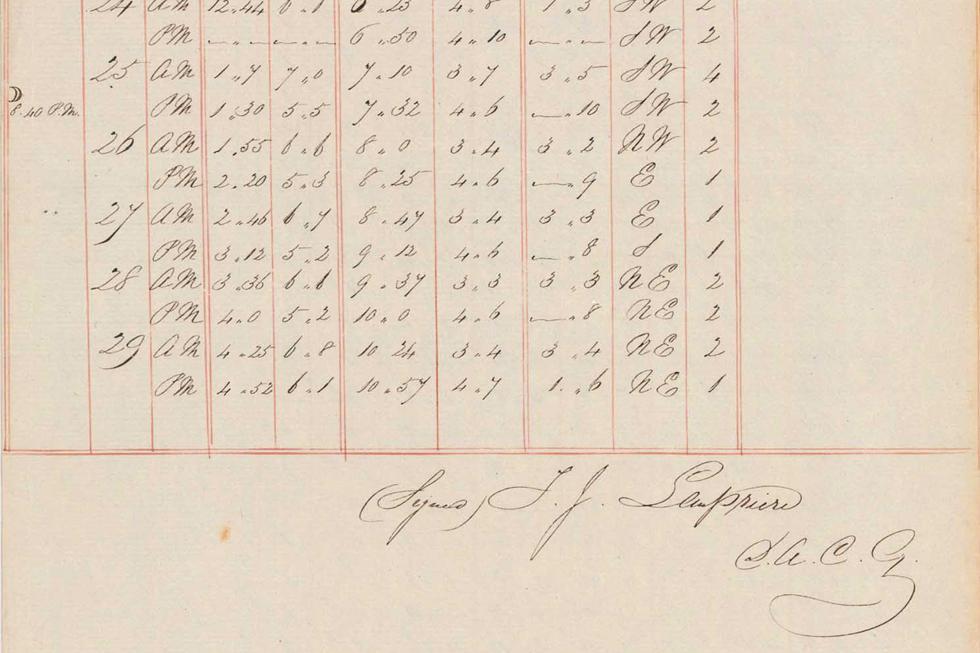 24 AM 12.44 6.1 6.23 4.8 1.3 SW 2
PM — „ — — „ — 6 „ 50 4 „ 10 — „ — SW 2
25 AM 1 „ 7 7 „ 0 7 „ 10 3 „ 7 3 „ 5 SW 4
8.40 P.M. PM 1 „ 30 5 „ 5 7 „ 32 4 „ 6 — „ 10 SW 2
26 AM 1 „ 55 6 „ 6 8 „ 0 3 „ 4 3 „ 2 NW 2
PM 2 „ 20 5 „ 3 8 „ 25 4 „ 6 — „ 9 E 1
27 AM 2 „ 46 6 „ 7 8 „ 47 3 „ 4 3 „ 3 E 1
PM 3 „ 12 5 „ 2 9 „ 12 4 „ 6 — „ 8 S 1
28 AM 3 „ 36 6 „ 6 9 „ 37 3 „ 3 3 „ 3 NE 2
PM 4 „ 0 5 „ 2 10 „ 0 4 „ 6 — „ 8 NE 2
29 AM 4 „ 25 6 „ 8 10 „ 24 3 „ 4 3 „ 4 NE 2
PM 4 „ 52 6 „ 1 10 „ 57 4 „ 7 1 „ 6 NE 1
(Signed) T. J. Lempriere
D.A.C.G.